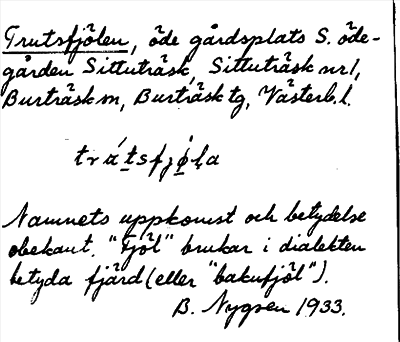 Trutsfjölen, öde gårdsplats S. öde-
gården Sittuträsk, Sittuträsk nr 1,
Burträsk m, Burträsk tg, Västerb. l.
Namnets uppkomst och betydelse
obekant. "Fjöl" brukar i dialekten
betyda fjärd (eller "bakufjöl").
B. Nygren 1933.